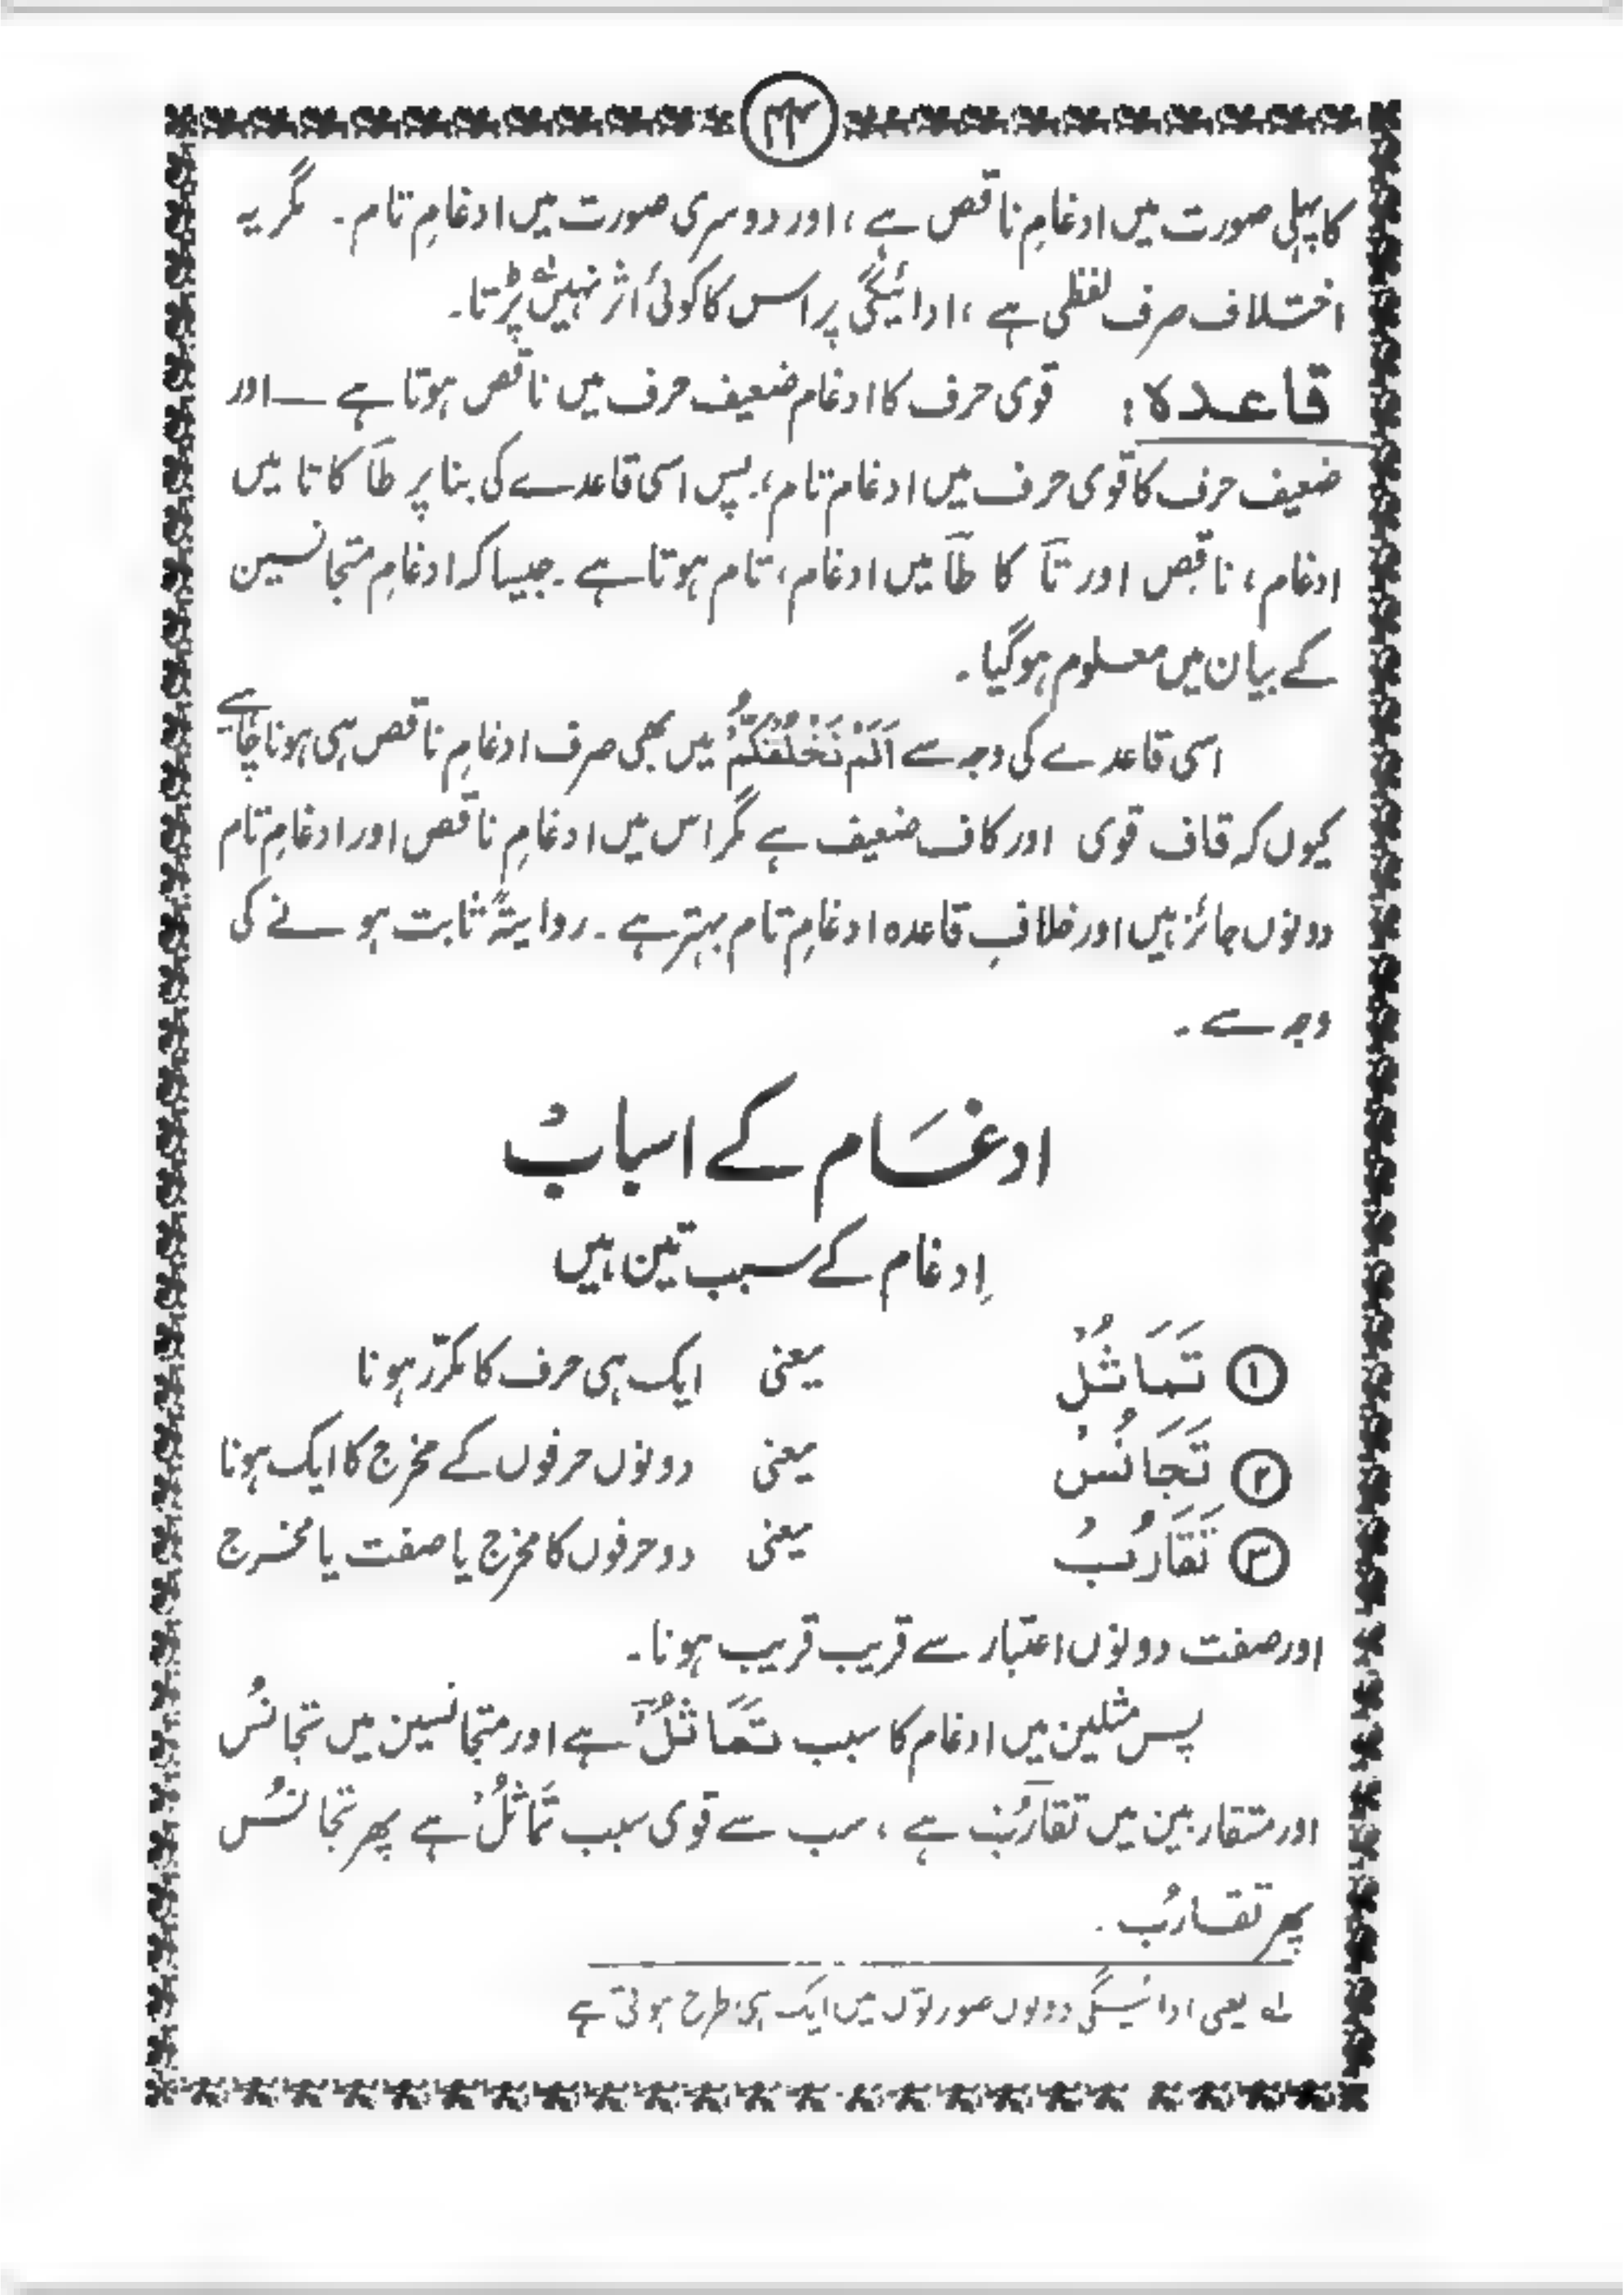 ۴۴
کا پہلی صورت میں ادغامِ ناقص ہے ، اور دوسری صورت میں ادغامِ تام ۔ مگر یہ
اختلاف صرف لفظی ہے ، ادائیگی پر اس کا کوئی اثر نہیں پڑتا ۔
قاعدہ : قوی حرف کا ادغام ضعیف حرف میں ناقص ہوتا ہے — اور
ضعیف حرف کا قوی حرف میں ادغام تام ، پس اسی قاعدے کی بنا پر طآ کا تا میں
ادغام ، ناقص اور تآ کا طآ میں ادغام ، تام ہوتا ہے ۔ جیسا کہ ادغامِ متجانسین
کے بیان میں معلوم ہو گیا ۔
اسی قاعدے کی وجہ سے اَلَمْ نَخْلُقْكُّمْ میں بھی صرف ادغامِ ناقص ہی ہونا چاہئے
کیوں کہ قاف قوی اور کاف ضعیف ہے مگر اس میں ادغامِ ناقص اور ادغامِ تام
دونوں جائز ہیں اور خلافِ قاعدہ ادغامِ تام بہتر ہے ۔ روایتہً ثابت ہونے کی
وجہ سے ۔
ادغَام کے اسبابُ
اِدغام کے سبب تین ہیں
① تَمَاثُلْ یعنی ایک ہی حرف کا مکرّر ہونا
② تَجَانُسْ یعنی دونوں حرفوں کے مخرج کا ایک ہونا
③ تَقَارُبُ یعنی دو حرفوں کا مخرج یا صفت یا مخرج
اور صفت دونوں اعتبار سے قریب قریب ہونا ۔
پس مثلین میں ادغام کا سبب تَمَاثُلْ ہے اور متجانسین میں تجانُس
اور متقاربین میں تقارُب ہے ، سب سے قوی سبب تماثُلْ ہے پھر تجانُس
پھر تقارُب ۔
لہ یعنی ادائیگی دونوں صورتوں میں ایک ہی طرح ہوتی ہے